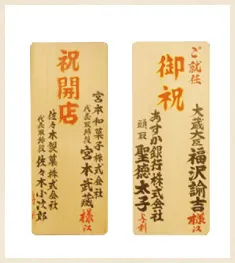 祝開店
宮本和菓子株式会社
代表取締役 宮本武蔵様江
佐々木製菓株式会社
代表取締役 佐々木小次郎
ご就任
御祝
大蔵大臣 福沢諭吉様江
あすか銀行株式会社
頭取 聖徳太子